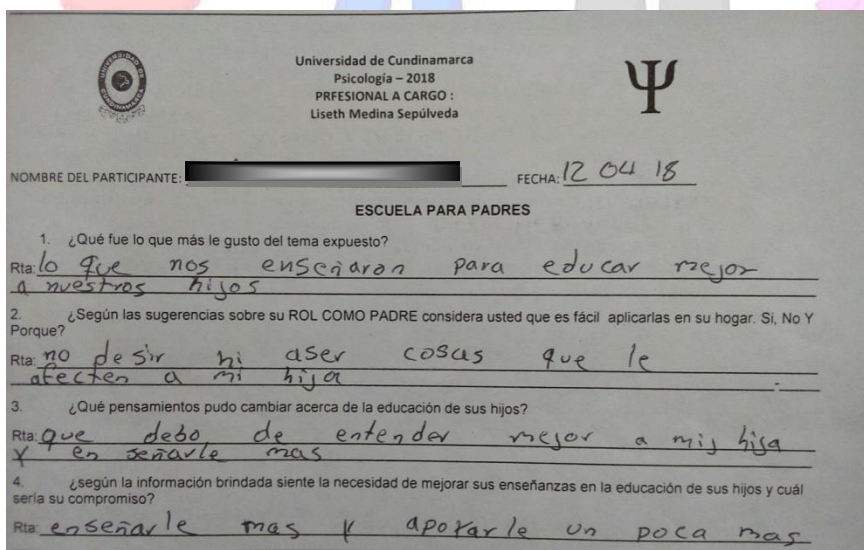 Universidad de Cundinamarca
Psicología – 2018
PRFESIONAL A CARGO :
Liseth Medina Sepúlveda
Ψ
NOMBRE DEL PARTICIPANTE: FECHA: 12 04 18
ESCUELA PARA PADRES
1. ¿Qué fue lo que más le gusto del tema expuesto?
Rta: lo que nos enseñaron para educar mejor
a nuestros hijos
2. ¿Según las sugerencias sobre su ROL COMO PADRE considera usted que es fácil aplicarlas en su hogar. Si, No Y
Porque?
Rta: no desir ni aser cosas que le
afecten a mi hija
3. ¿Qué pensamientos pudo cambiar acerca de la educación de sus hijos?
Rta: que debo de entender mejor a mis hija
y en señarle mas
4. ¿según la información brindada siente la necesidad de mejorar sus enseñanzas en la educación de sus hijos y cuál
seria su compromiso?
Rta: enseñarle mas y apoyarle un poca mas